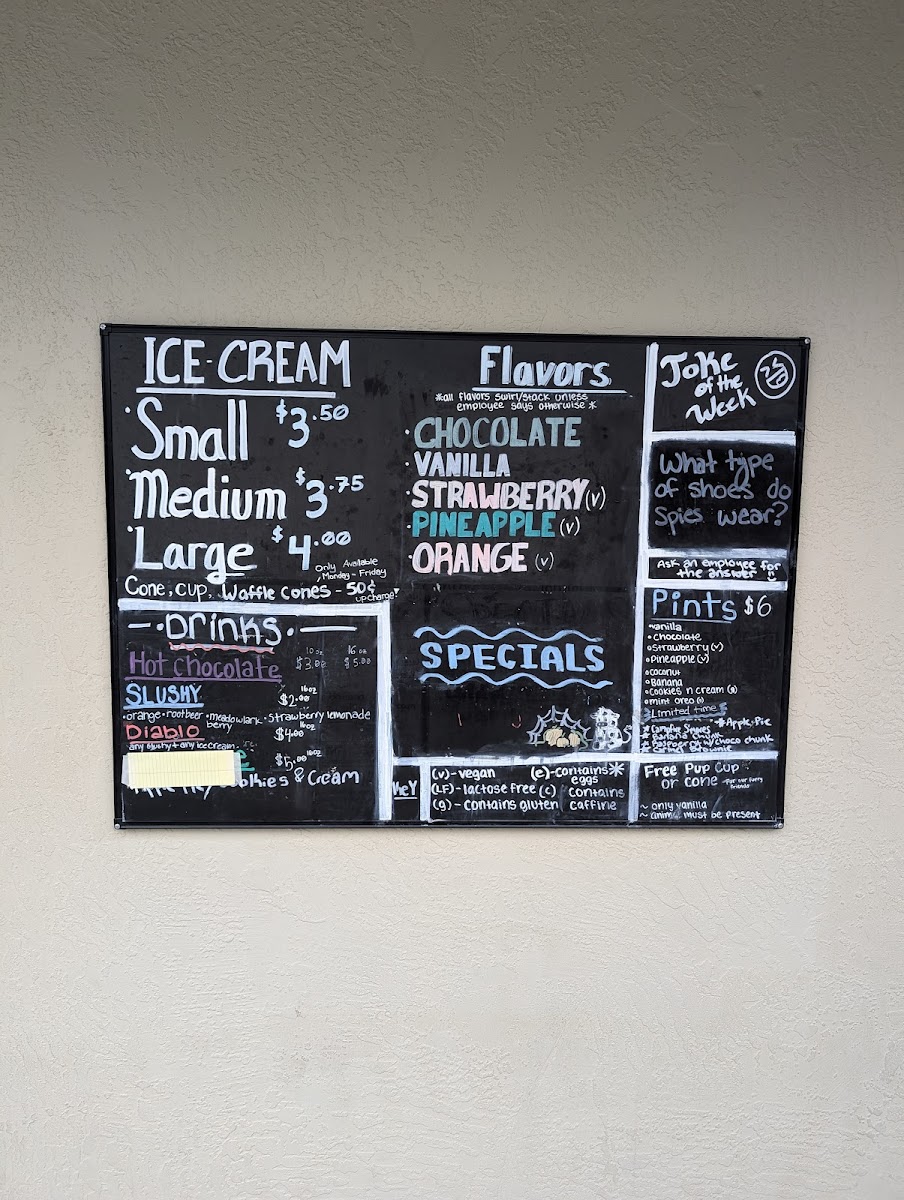 ICE-CREAM
• Small $3.50
• Medium $3.75
• Large $4.00
Only Available
Monday - Friday
Cone, cup, Waffle cones - 50¢
upcharge!
—•Drinks•—
10oz 16oz
Hot Chocolate $3.00 $5.00
16oz
SLUSHY $2.00
•orange •rootbeer •meadowlark •strawberry lemonade
berry
16oz
Diablo $4.00
any slushy + any ice cream
16oz
$5.00
& Cream
Flavors
*all flavors swirl/stack unless
employee says otherwise*
• CHOCOLATE
• VANILLA
• STRAWBERRY (v)
• PINEAPPLE (v)
• ORANGE (v)
SPECIALS
KEY
(v) - vegan (e) - contains *
eggs
(LF) - lactose free (c) contains
(g) - contains gluten caffine
Joke
of the
Week
What type
of shoes do
spies wear?
Ask an employee for
the answer
Pints $6
•vanilla
•chocolate
•strawberry (v)
•pineapple (v)
•coconut
•Banana
•cookies n cream (g)
•mint oreo (g)
Limited time
*Apple Pie
* Campfire Smores
* Banana chunk
* Raspberry w/choco chunk
Brownie
Free Pup Cup
or cone -for our furry
friends
~ only vanilla
~ animal must be present